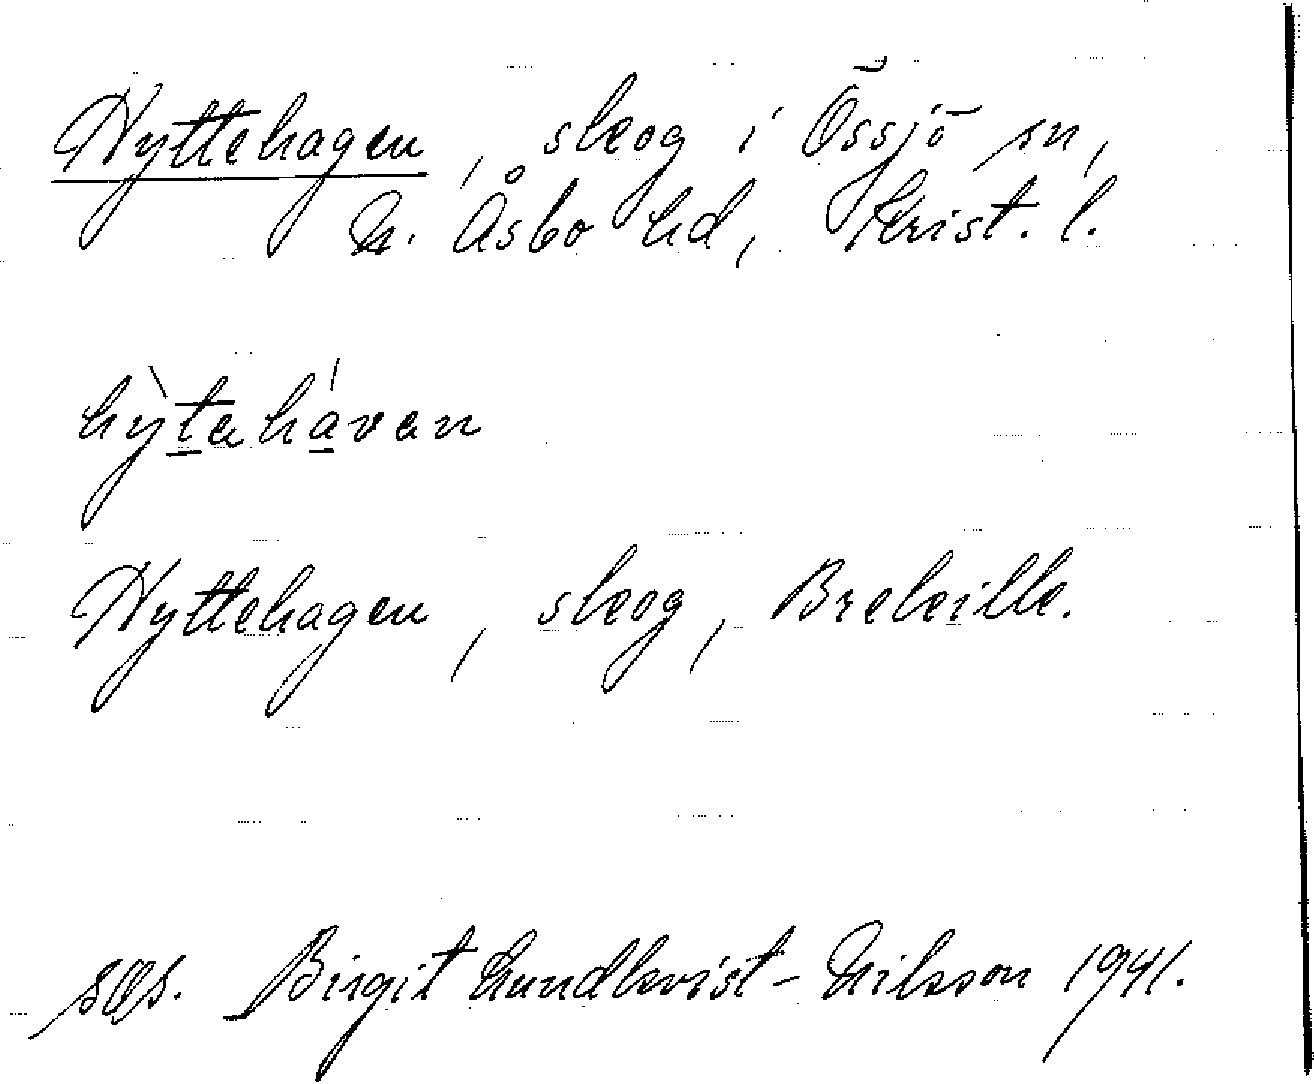 Hyttehagen, skog i Össjö sn,
N. Åsbo hd, Krist. l.
hỳtahávan
Hyttehagen, skog, Brekille.
Birgit Lundkvist-Nilsson 1941.